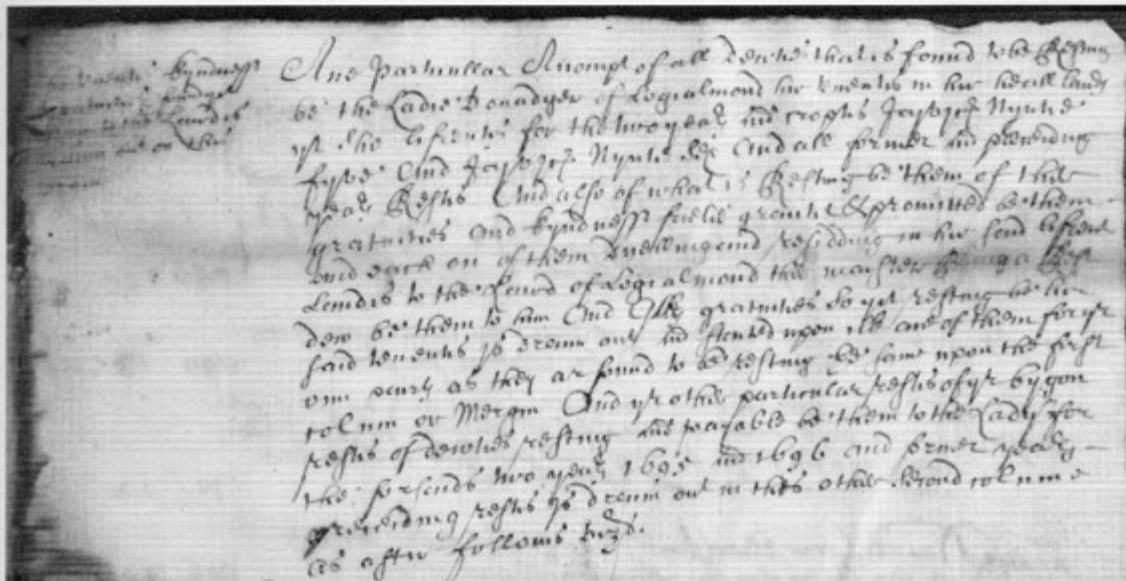 the tenents kyndness
gratuities
to the Lairds
on this
Ane Particullar Accompt of all dewties that is found to be Resting
be the Ladie Douadger of Logialmond hir tenents in hir haill lands
yt sho liferents for the two years and cropts Jajvjc Nyntie
fyve And Jajvjc Nyntie sex And all former and preceiding
years Rests And also of what is Resting be them of the
gratuities and kyndness frielie granted & promitted be them
and each on of them duelling and residding in hir land liferent
Landis to the Laird of Logialmond ther maister
dew be them to him And gratuities so yt resting be the
said tenents is drawn out and stented upon ilk ane of them for yr
oun pairts as they ar found to be resting the same upon the first
colum or Mergin And yr other particular rests of yr bygon
rests of dewties resting and payable be them to the Lady for
the forsaids two years 1695 and 1696 and former years
preceiding rests is drawn out in this other second column
as after follows vizt.